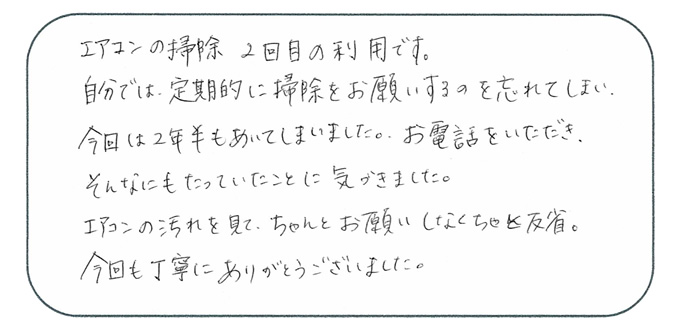 エアコンの掃除 2回目の利用です。
自分では、定期的に掃除をお願いするのを忘れてしまい、
今回は2年半もあいてしまいました。お電話をいただき、
そんなにもたっていたことに気づきました。
エアコンの汚れを見て、ちゃんとお願いしなくちゃと反省。
今回も丁寧にありがとうございました。